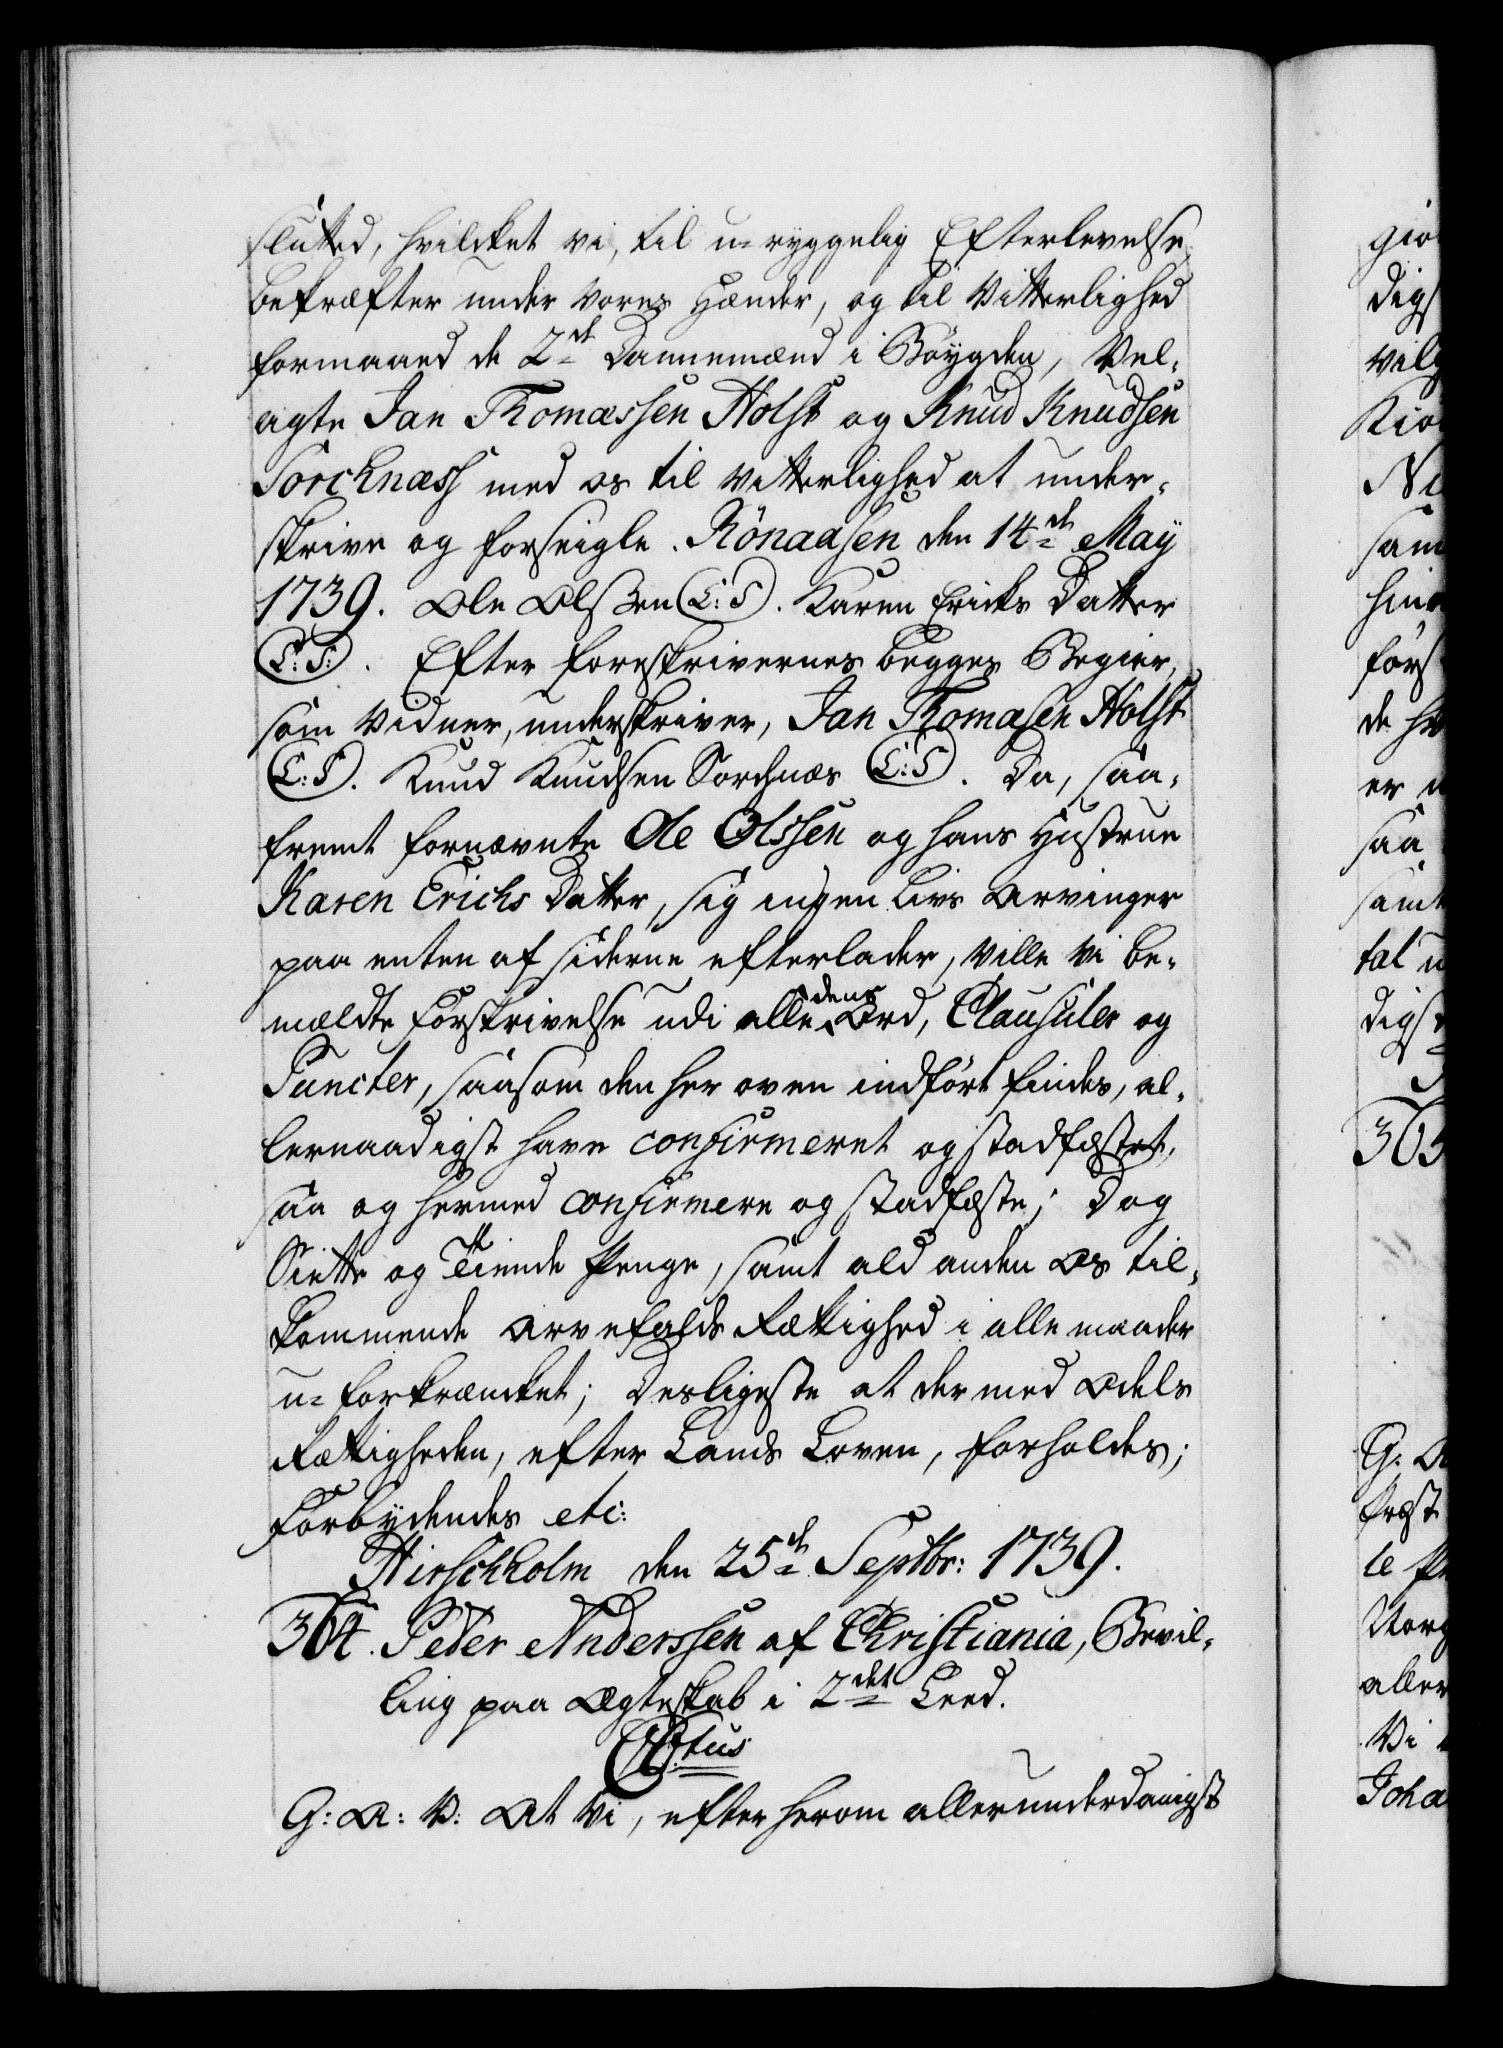 slutted, hvilcket vi, til u-ryggelig Efterlevelse,
bekræfter under vores Hænder, og til Vitterlighed
formaaed de 2de Dannemænd i Bøygden, Vel-
agte Jan Thomæssen Holst og Knud Knudsen
Sorcknæss med os til vitterlighed at under-
skrive og forseigle. Rönaasen den 14de May
1739. Ole Olssen (L:S). Karen Ericks Datter
(L:S:). Efter foreskrivernes begges Begier,
som Vidner, underskriver, Jan Thomasen Holst
(L:S). Knud Knudsen Sorchnæs (L:S). Da, saa-
fremt fornævnte Ole Olssen og hans Hustrue
Karen Erichs Datter, sig ingen Livs Arvinger
paa enten af siderne efterlader, ville vi be-
mældte Forskrivelse udi alle dens Ord, Clausuler og
Puncter, saasom den her oven indført findes, al-
lernaadigst have confirmeret og stadfæstet,
saa og hermed confirmere og stadfæste; Dog
Siette og Tiende Penge, samt ald anden Os til-
kommende Arvefalds Rættighed i alle maader
u-forkræncket; Desligeste at der med Odels
Rættigheden, efter Lands Loven, forholdes;
Forbydendes etc:
Hirschholm den 25de Septbr: 1739.
364. Peder Anderssen af Christiania, Bevil-
ling paa Ægteskab i 2det Leed.
G: A: V: At Vi, efter herom allerunderdanigst